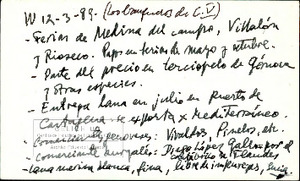 W 12-3-89. (Los Burgueses de C.V)
- Ferias de Medina del Campo, Villalón
y Rioseco. Pagos en ferias de mayo y octubre.
- Parte del precio en terciopelo de Génova
y otras especies.
- Entrega Lana en julio en puerto de
Cartagena se exporta x Mediterráneo.
- Comerciantes genoveses: Vivaldos, Pinelo, etc
- comerciante burgalés: Diego López Gallo
Flandes
- Lana merina blanca, fina, libre de impurezas, sucia